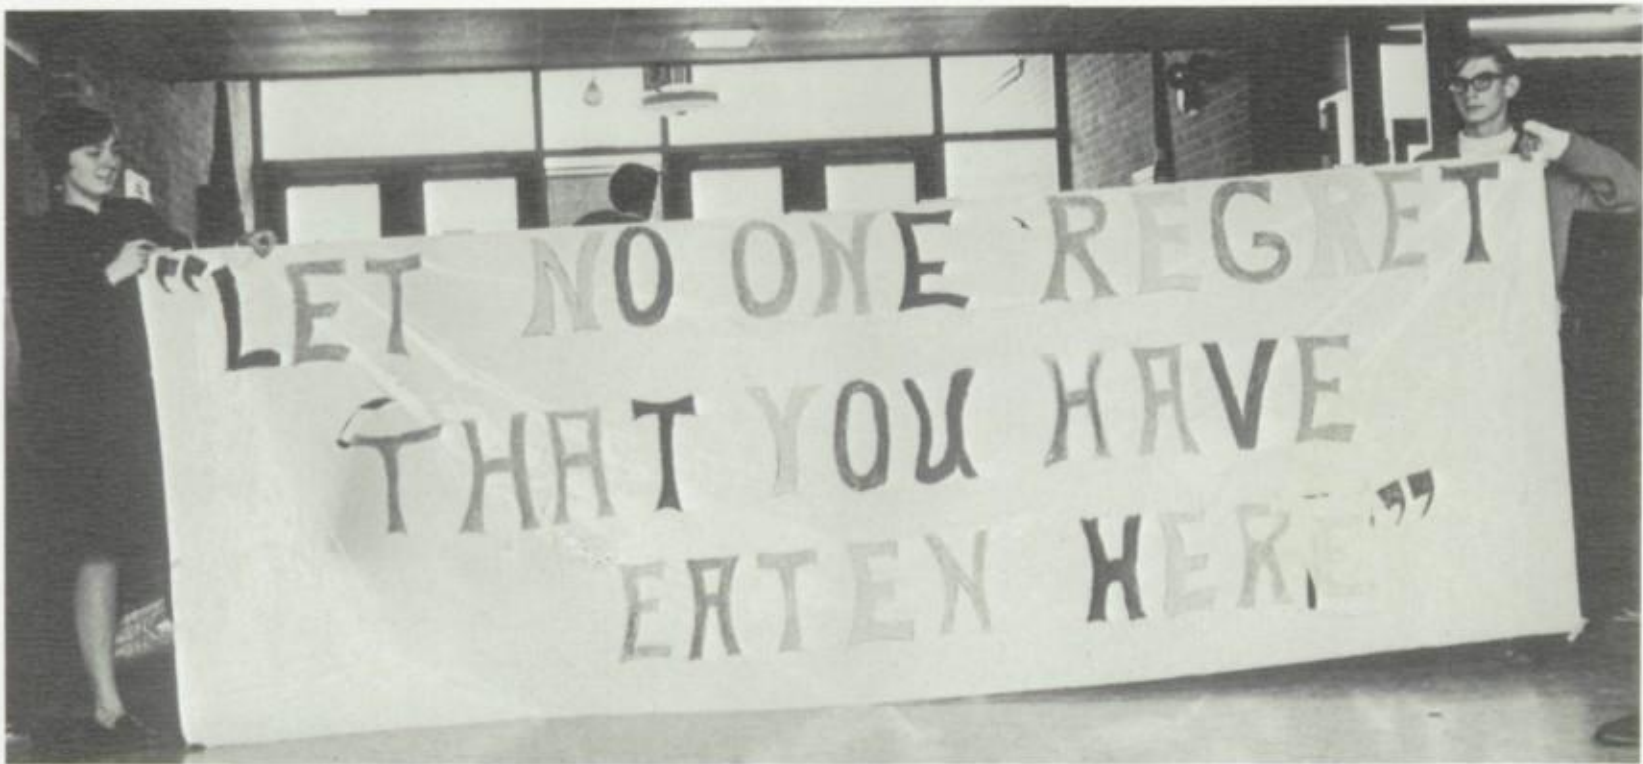 “LET NO ONE REGRET
THAT YOU HAVE
EATEN HERE”